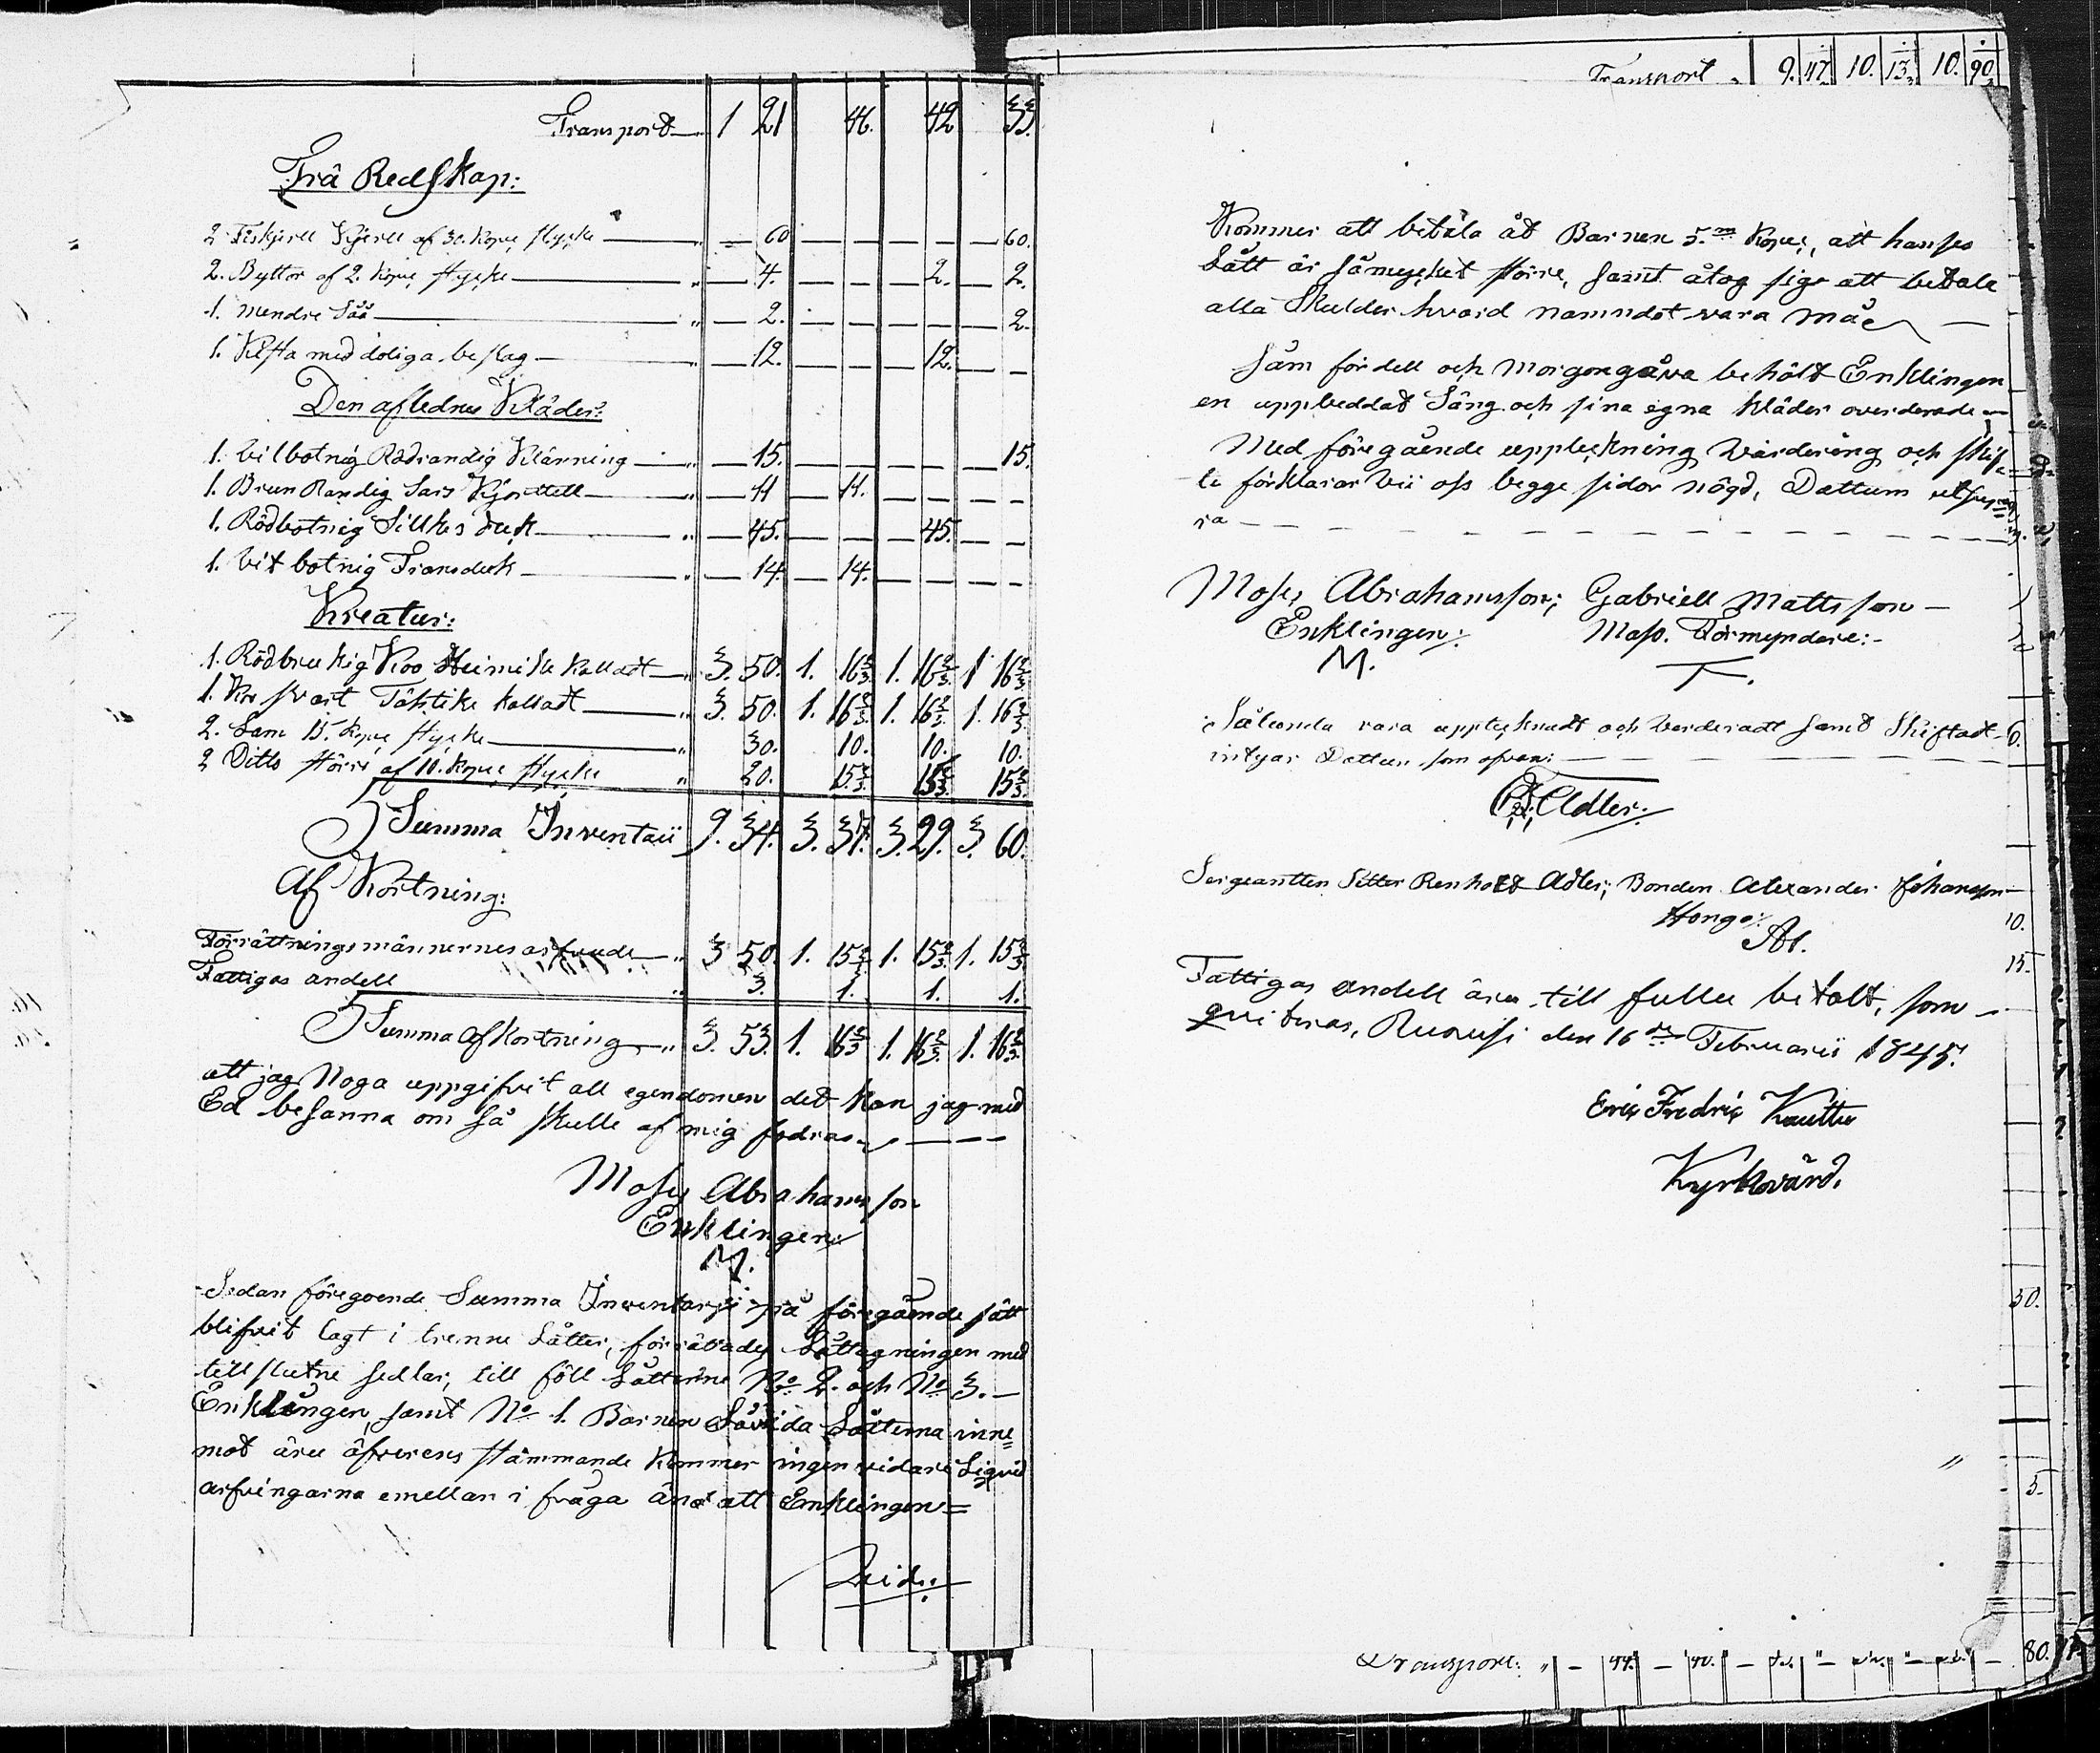 Transport 1 21 46. 42 33.
Trä Redskap:
2 Fiskjerell Kjerell af 30. Kope stycke " — 60 — — — — — 60.
2. Byttor af 2. Kope stycke " — 4. — — — 2. — 2.
1. mendre Såå " — 2. — — — — — 2.
1. Kista med doliga beslag — 12. — — — 12. — —
Den aflednes Kläder:
1. bilbotnig Rödrandig Klänning " — 15. — — — — — 15.
1. Brun Randig Sars Kjorttell " — 11 — 11. — — — —
1. Rödbotnig Sillkes duk " — 45. — — — 45. — —
1. Vit botnig Fransduk " — 14. — 14. — — — —
Kreatur:
1. Rödbrukig Koo Heimike Kallad " 3. 50. 1. 16⅔. 1. 16⅔. 1 16⅔.
1. Ko svart Tähtike kallad " 3. 50. 1. 16⅔. 1. 16⅔. 1. 16⅔.
2. Lam 15. Kope stycke " 30. 10. 10. 10.
2 Ditto större af 10. Kope stycke " 20. 15⅔. 15⅔. 15⅔.
Summa Inventaii 9. 34. 3. 37. 3. 29. 3. 60.
Af Kortning:
Förrättningsmännernes arfvode " 3 50. 1. 15⅔. 1. 15⅔. 1. 15⅔.
Fattigas andell " 3. 1. 1. 1.
Summa af Kortning " 3. 53. 1. 16⅔ 1. 16⅔. 1. 16⅔.
att jag Noga uppgifvit all egendomen det kan jag med
Ed besanna om så skulle af mig fodras
Moses Abrahamsson
Enklingen
M.
Sedan föregoende Summa Inventarii på föregående sätt
blifvit lagt i trenne Låtter, förrätades Låttagningen med
tillslutne sedlar, till föll Låtterne No 2. och No 3. —
Enklingen, samt No 1. Barnen Såvida Låtterna inne=
mot äru äfverens stämmande Kommer ingen vidare Liqvid
arfvingarna emellan i fråga änd att Enklingen=
Transport 9. 47 10. 13 10. 90
Kommer att betala åt Barnen 5. Kope, att hanses
Lått är såmycket större, samt åtog sig att betale
alla Skulder hvard namndet vara må
Såm fördell och Morgongåva behölt Enklingen
en uppbeddad Säng och sina egna kläder overderade
Med föregående uppteckning Värdering och skif=
te förklarar vii oss begge sidor nögd, Dattum utsup=
ra
Moses Abrahamsson; Gabriell Mattsson —
Enklingen: Förmyndare:
M. T.
Sålunda vara upptecknadt och Verderadt samt Skiftadt
intygar Dattum som ofvan:
Adler:
Sergeantten Petter Renhold Adler; Bonden Alexander Johansson
Hongo:
Al.
Fattigas andell äru till fullu betalt, som
qvitteras, Ruovesi den 16de Februarii 1845.
Eric Fredric Kauttu
Kyrkovärd.
6.
10.
15.
50.
5.
Transport: " — 44. — 40. — — — 80.